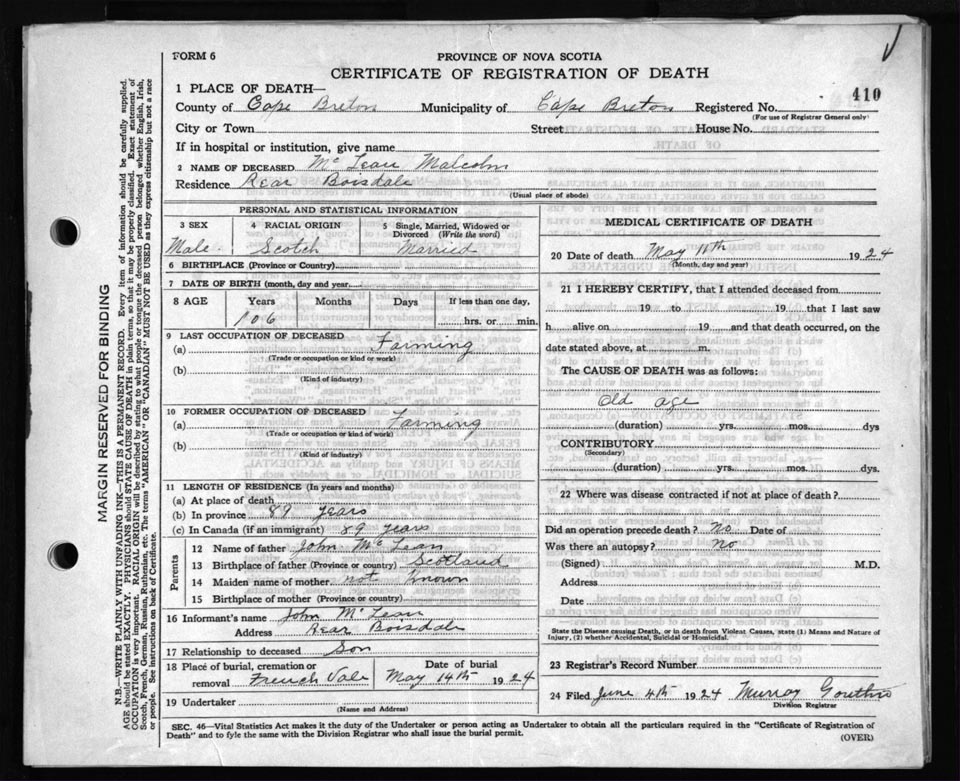 FORM 6
PROVINCE OF NOVA SCOTIA
CERTIFICATE OF REGISTRATION OF DEATH
410
1 PLACE OF DEATH—
County of Cape Breton Municipality of Cape Breton Registered No.
(For use of Registrar General only)
City or Town Street House No.
If in hospital or institution, give name
2 NAME OF DECEASED Mc Lean Malcolm
Residence Rear Boisdale
(Usual place of abode)
PERSONAL AND STATISTICAL INFORMATION
3 SEX 4 RACIAL ORIGIN 5 Single, Married, Widowed or Divorced (Write the word)
Male. Scotch Married
6 BIRTHPLACE (Province or Country)
7 DATE OF BIRTH (month, day and year)
8 AGE Years Months Days If less than one day,
106 hrs. or min.
9 LAST OCCUPATION OF DECEASED
(a) Farming
(Trade or occupation or kind or work)
(b)
(Kind of industry)
10 FORMER OCCUPATION OF DECEASED
(a) Farming
(Trade or occupation or kind of work)
(b)
(Kind of industry)
11 LENGTH OF RESIDENCE (In years and months)
(a) At place of death
(b) In province 89 years
(c) In Canada (if an immigrant) 89 years
Parents
12 Name of father John Mc Lean
13 Birthplace of father (Province or country) Scotland
14 Maiden name of mother not known
15 Birthplace of mother (Province or country)
16 Informant's name John Mc Lean
Address Rear Boisdale
17 Relationship to deceased Son
18 Place of burial, cremation or removal French Vale
Date of burial May 14th 1924
19 Undertaker
(Name and Address)
MEDICAL CERTIFICATE OF DEATH
20 Date of death May 11th 1924
(Month, day and year)
21 I HEREBY CERTIFY, that I attended deceased from
19 to 19 that I last saw
h alive on 19 and that death occurred, on the
date stated above, at m.
The CAUSE OF DEATH was as follows:
Old age
(duration) yrs. mos. dys
CONTRIBUTORY
(Secondary)
(duration) yrs. mos. dys.
22 Where was disease contracted if not at place of death?
Did an operation precede death? No Date of
Was there an autopsy? No
(Signed) M.D.
Address
Date
State the Disease causing Death, or in death from Violent Causes, state (1) Means and Nature of
Injury, (2) whether Accidental, Suicidal or Homicidal.
23 Registrar's Record Number
24 Filed June 4th 1924 Murray
Division Registrar
SEC. 46—Vital Statistics Act makes it the duty of the Undertaker or person acting as Undertaker to obtain all the particulars required in the "Certificate of Registration of
Death" and to fyle the same with the Division Registrar who shall issue the burial permit.
(OVER)
MARGIN RESERVED FOR BINDING
N.B.—WRITE PLAINLY WITH UNFADING INK—THIS IS A PERMANENT RECORD. Every item of information should be carefully supplied.
AGE should be stated EXACTLY. PHYSICIANS should STATE CAUSE OF DEATH in plain terms, so that it may be properly classified. Exact statement of
OCCUPATION is very important. RACIAL ORIGIN will be described by stating to what people or tongue the deceased person belonged whether English, Irish,
Scotch, French, German, Russian, Ruthenian, etc. The terms "AMERICAN" OR "CANADIAN" MUST NOT BE USED as they express citizenship but not a race
or people. See instructions on back of Certificate.